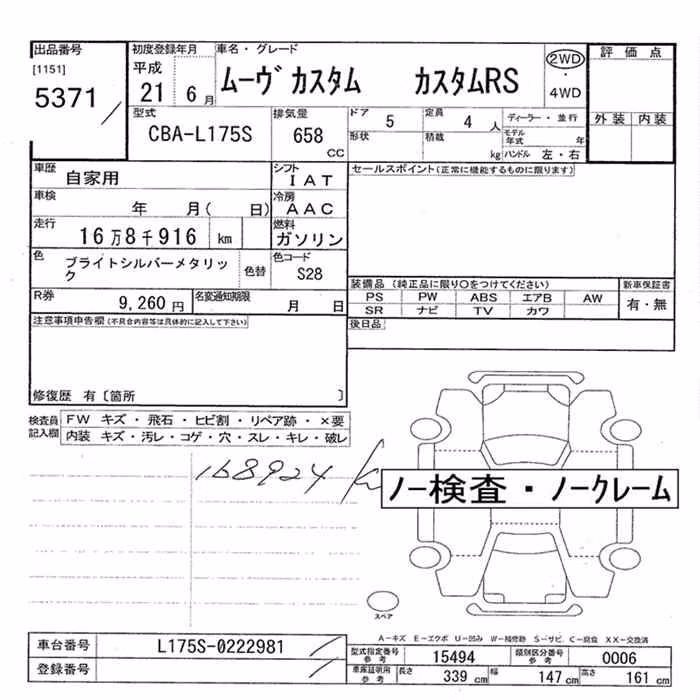 出品番号
[1151]
5371
初度登録年月
平成
21 6月
車名・グレード
ムーヴ カスタム カスタムRS
2WD
・
4WD
評価点
外装 内装
型式
CBA-L175S
排気量
658
CC
ドア 5
定員 4 人
形状
積載
kg
ディーラー・並行
モデル年式 年
ハンドル 左・右
車歴 自家用
シフト IAT
車検 年 月( 日)
冷房 AAC
走行 16万8千916 km
燃料 ガソリン
色 ブライトシルバーメタリック
色替
色コード S28
R券 9,260円
名変通知期限 月 日
セールスポイント(正常に機能するものに限ります)
装備品(純正品に限り○をつけてください)
新車保証書
有・無
PS PW ABS エアB AW
SR ナビ TV カワ
後日品
注意事項申告欄(不具合内容等は具体的に記入して下さい)
修復歴 有〔箇所 〕
検査員記入欄
FW キズ・飛石・ヒビ割・リペア跡・×要
内装 キズ・汚レ・コゲ・穴・スレ・キレ・破レ
168924 km
ノー検査・ノークレーム
スペア
A-キズ E-エクボ U-凹み W-補修跡 S-サビ C-腐食 XX-交換済
車台番号 L175S-0222981
登録番号
型式指定番号 参考 15494
類別区分番号 参考 0006
車庫証明用 参考 長さ 339 cm 幅 147 cm 高さ 161 cm